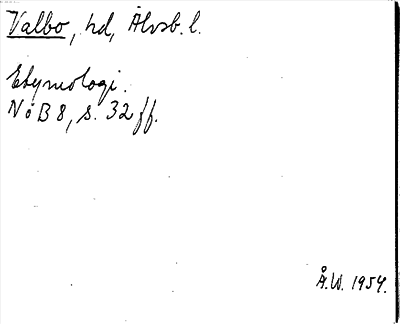 Valbo, hd, Älvsb. l.
Etymologi.
NoB 8, s. 32 ff.
Å.W. 1954.